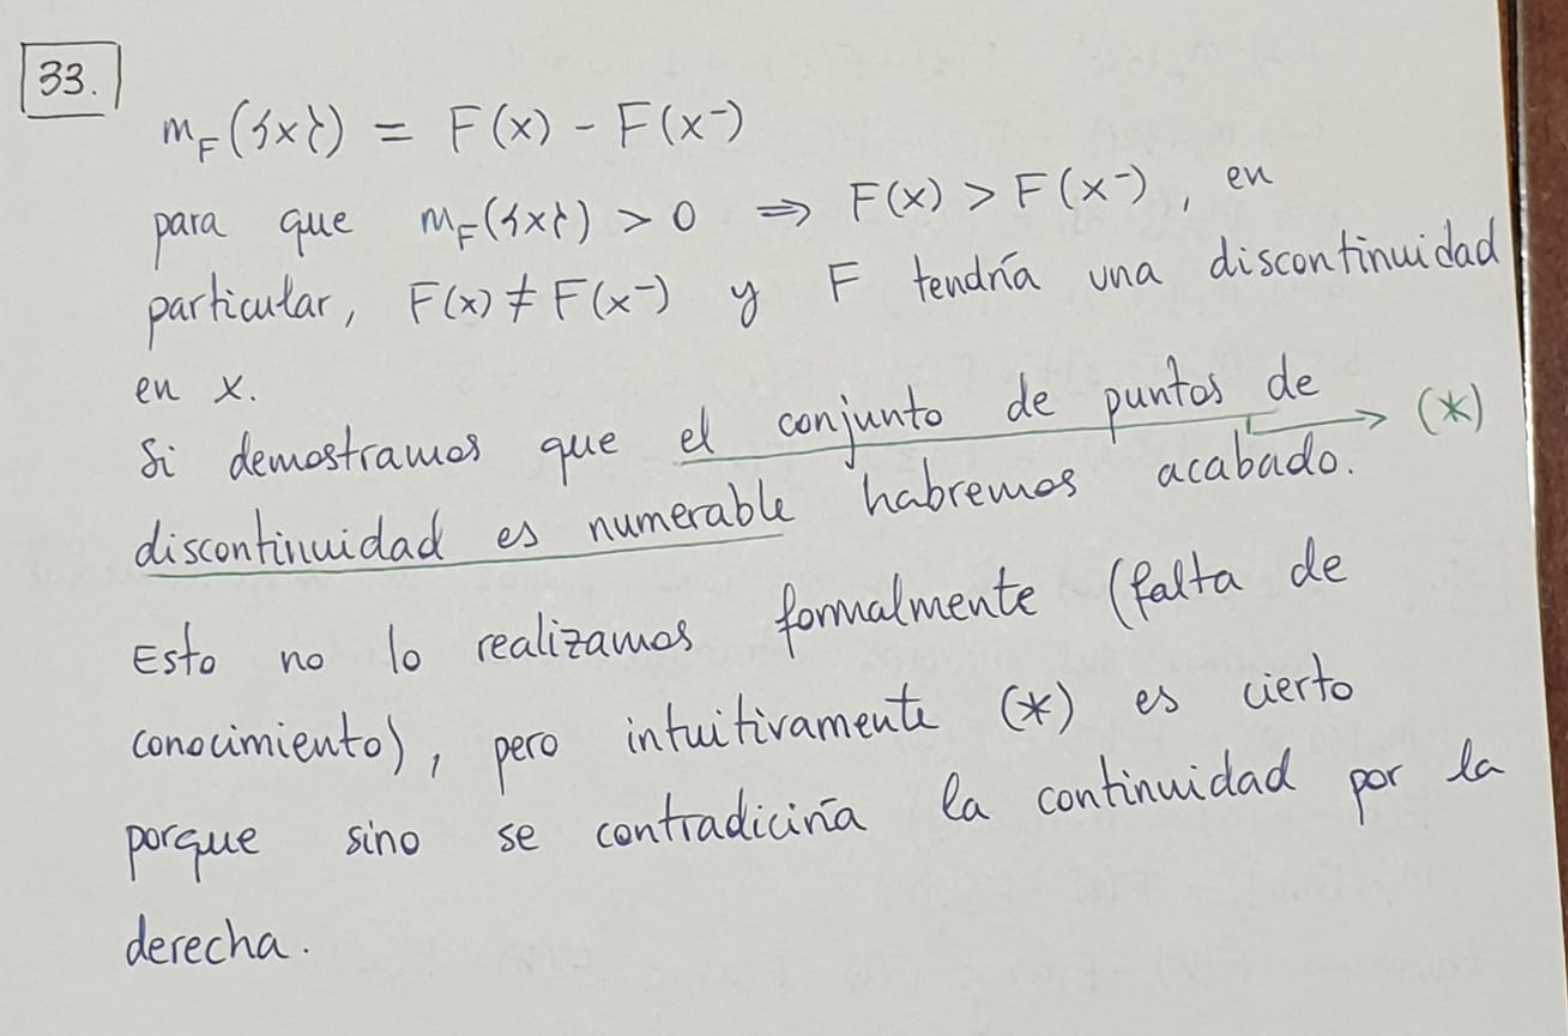 33.
m_F({x}) = F(x) - F(x⁻)
para que m_F({x}) > 0 ⇒ F(x) > F(x⁻), en
particular, F(x) ≠ F(x⁻) y F tendría una discontinuidad
en x.
Si demostramos que el conjunto de puntos de → (*)
discontinuidad es numerable habremos acabado.
Esto no lo realizamos formalmente (falta de
conocimiento), pero intuitivamente (*) es cierto
porque sino se contradiciría la continuidad por la
derecha.